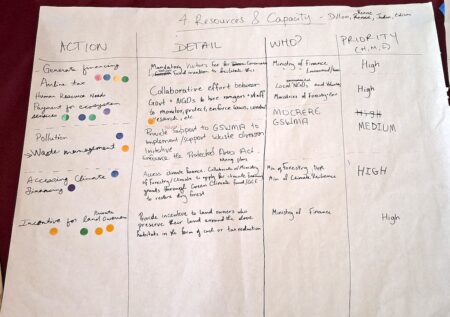 4 Resources & Capacity - Dillon, Renee, Jodin,
ACTION DETAIL WHO? PRIORITY
(H,M,L)
- Generate financing
Airline tax
Mandatory Visitors Fee for
fund mechanism to facilitate this
Ministry of Finance
High
Human Resource Needs
Payment for ecosystem
services
Collaborative effort between
Govt + NGOs to hire rangers + staff
to monitor, protect, enforce laws, conduct
research, etc
Local NGOs and
Ministries of Forestry
High
Pollution
→ Waste management
Provide Support to GSWMA to
implement/support waste diversion
initiative
Enhance the Protected Areas Act
MOCRERE
GSWMA
HIGH
MEDIUM
Accessing Climate
Financing
Access climate finance. Collaborate w/ Ministry
of Forestry/Climate to apply for climate
grants through Green Climate Fund/GCF
to restore dry forest
Min of Forestry Dept
Min of Climate Resilience
HIGH
Incentive for Private land owners
Provide incentive to land owners who
preserve their land around the above
habitats in the form of cash or tax reduction
Ministry of Finance
High